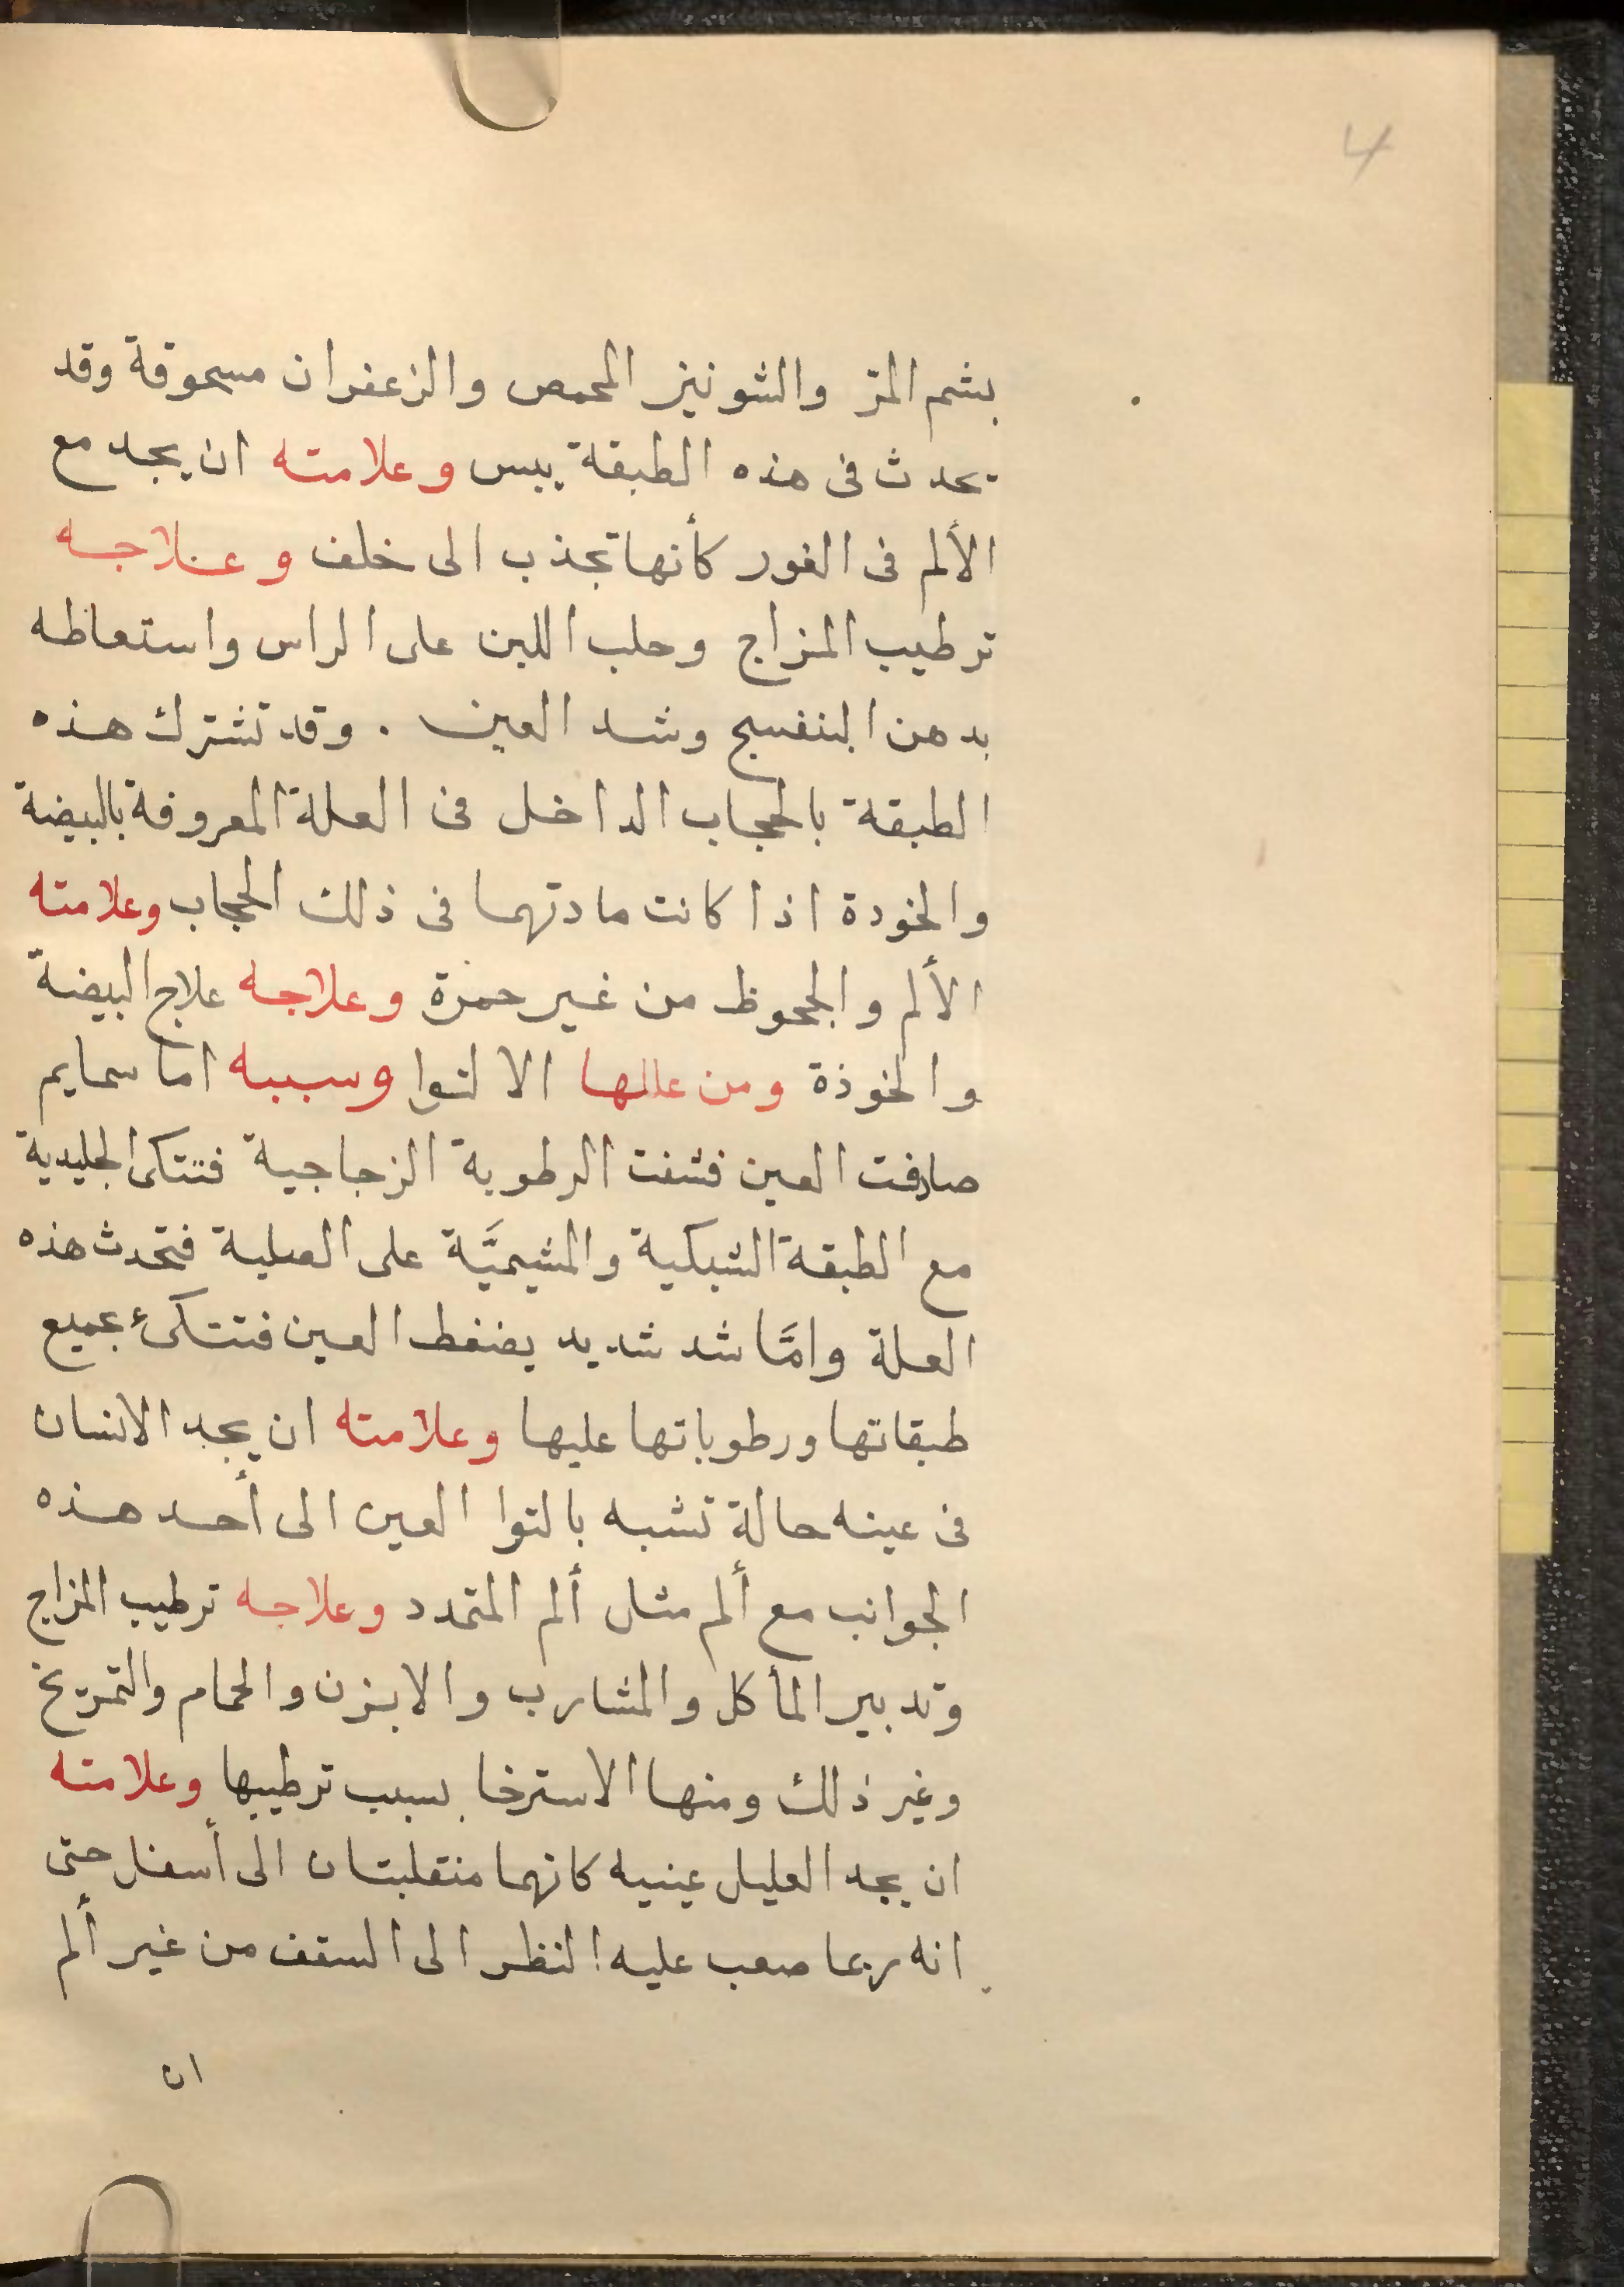 4
بشم المرّ والشونيز المحمص والزعفران مسحوقة وقد
يحدث فى هذه الطبقة يبس وعلامته ان يجد مع
الألم فى الغور كأنها تجذب الى خلف وعلاجه
ترطيب المزاج وحلب اللبن على الراس واستعاطه
بدهن البنفسج وشد العين . وقد تشترك هذه
الطبقة بالحجاب الداخل فى العلة المعروفة بالبيضة
والخودة اذا كانت مادتهما فى ذلك الحجاب وعلامته
الألم والجحوظ من غير حمرة وعلاجه علاج البيضة
والخوذة ومن عللها الالتوا وسببه اما سمايم
صادفت العين فنشفت الرطوبة الزجاجية فتتكى الجليدية
مع الطبقة الشبكية والمشيميَّة على الصلبة فتحدث هذه
العلة وامَّا شد شديد يضغط العين فتتكئ جميع
طبقاتها ورطوباتها عليها وعلامته ان يجد الانسان
فى عينه حالة تشبه بالتوا العين الى أحد هذه
الجوانب مع ألم مثل ألم المتمدد وعلاجه ترطيب المزاج
وتدبير المأكل والمشارب والابزن والحمام والتمريخ
وغير ذلك ومنها الاسترخا بسبب ترطيبها وعلامته
ان يجد العليل عينيه كانهما منقلبتان الى أسفل حتى
انه ربما صعب عليه النظر الى السقف من غير ألم
ان